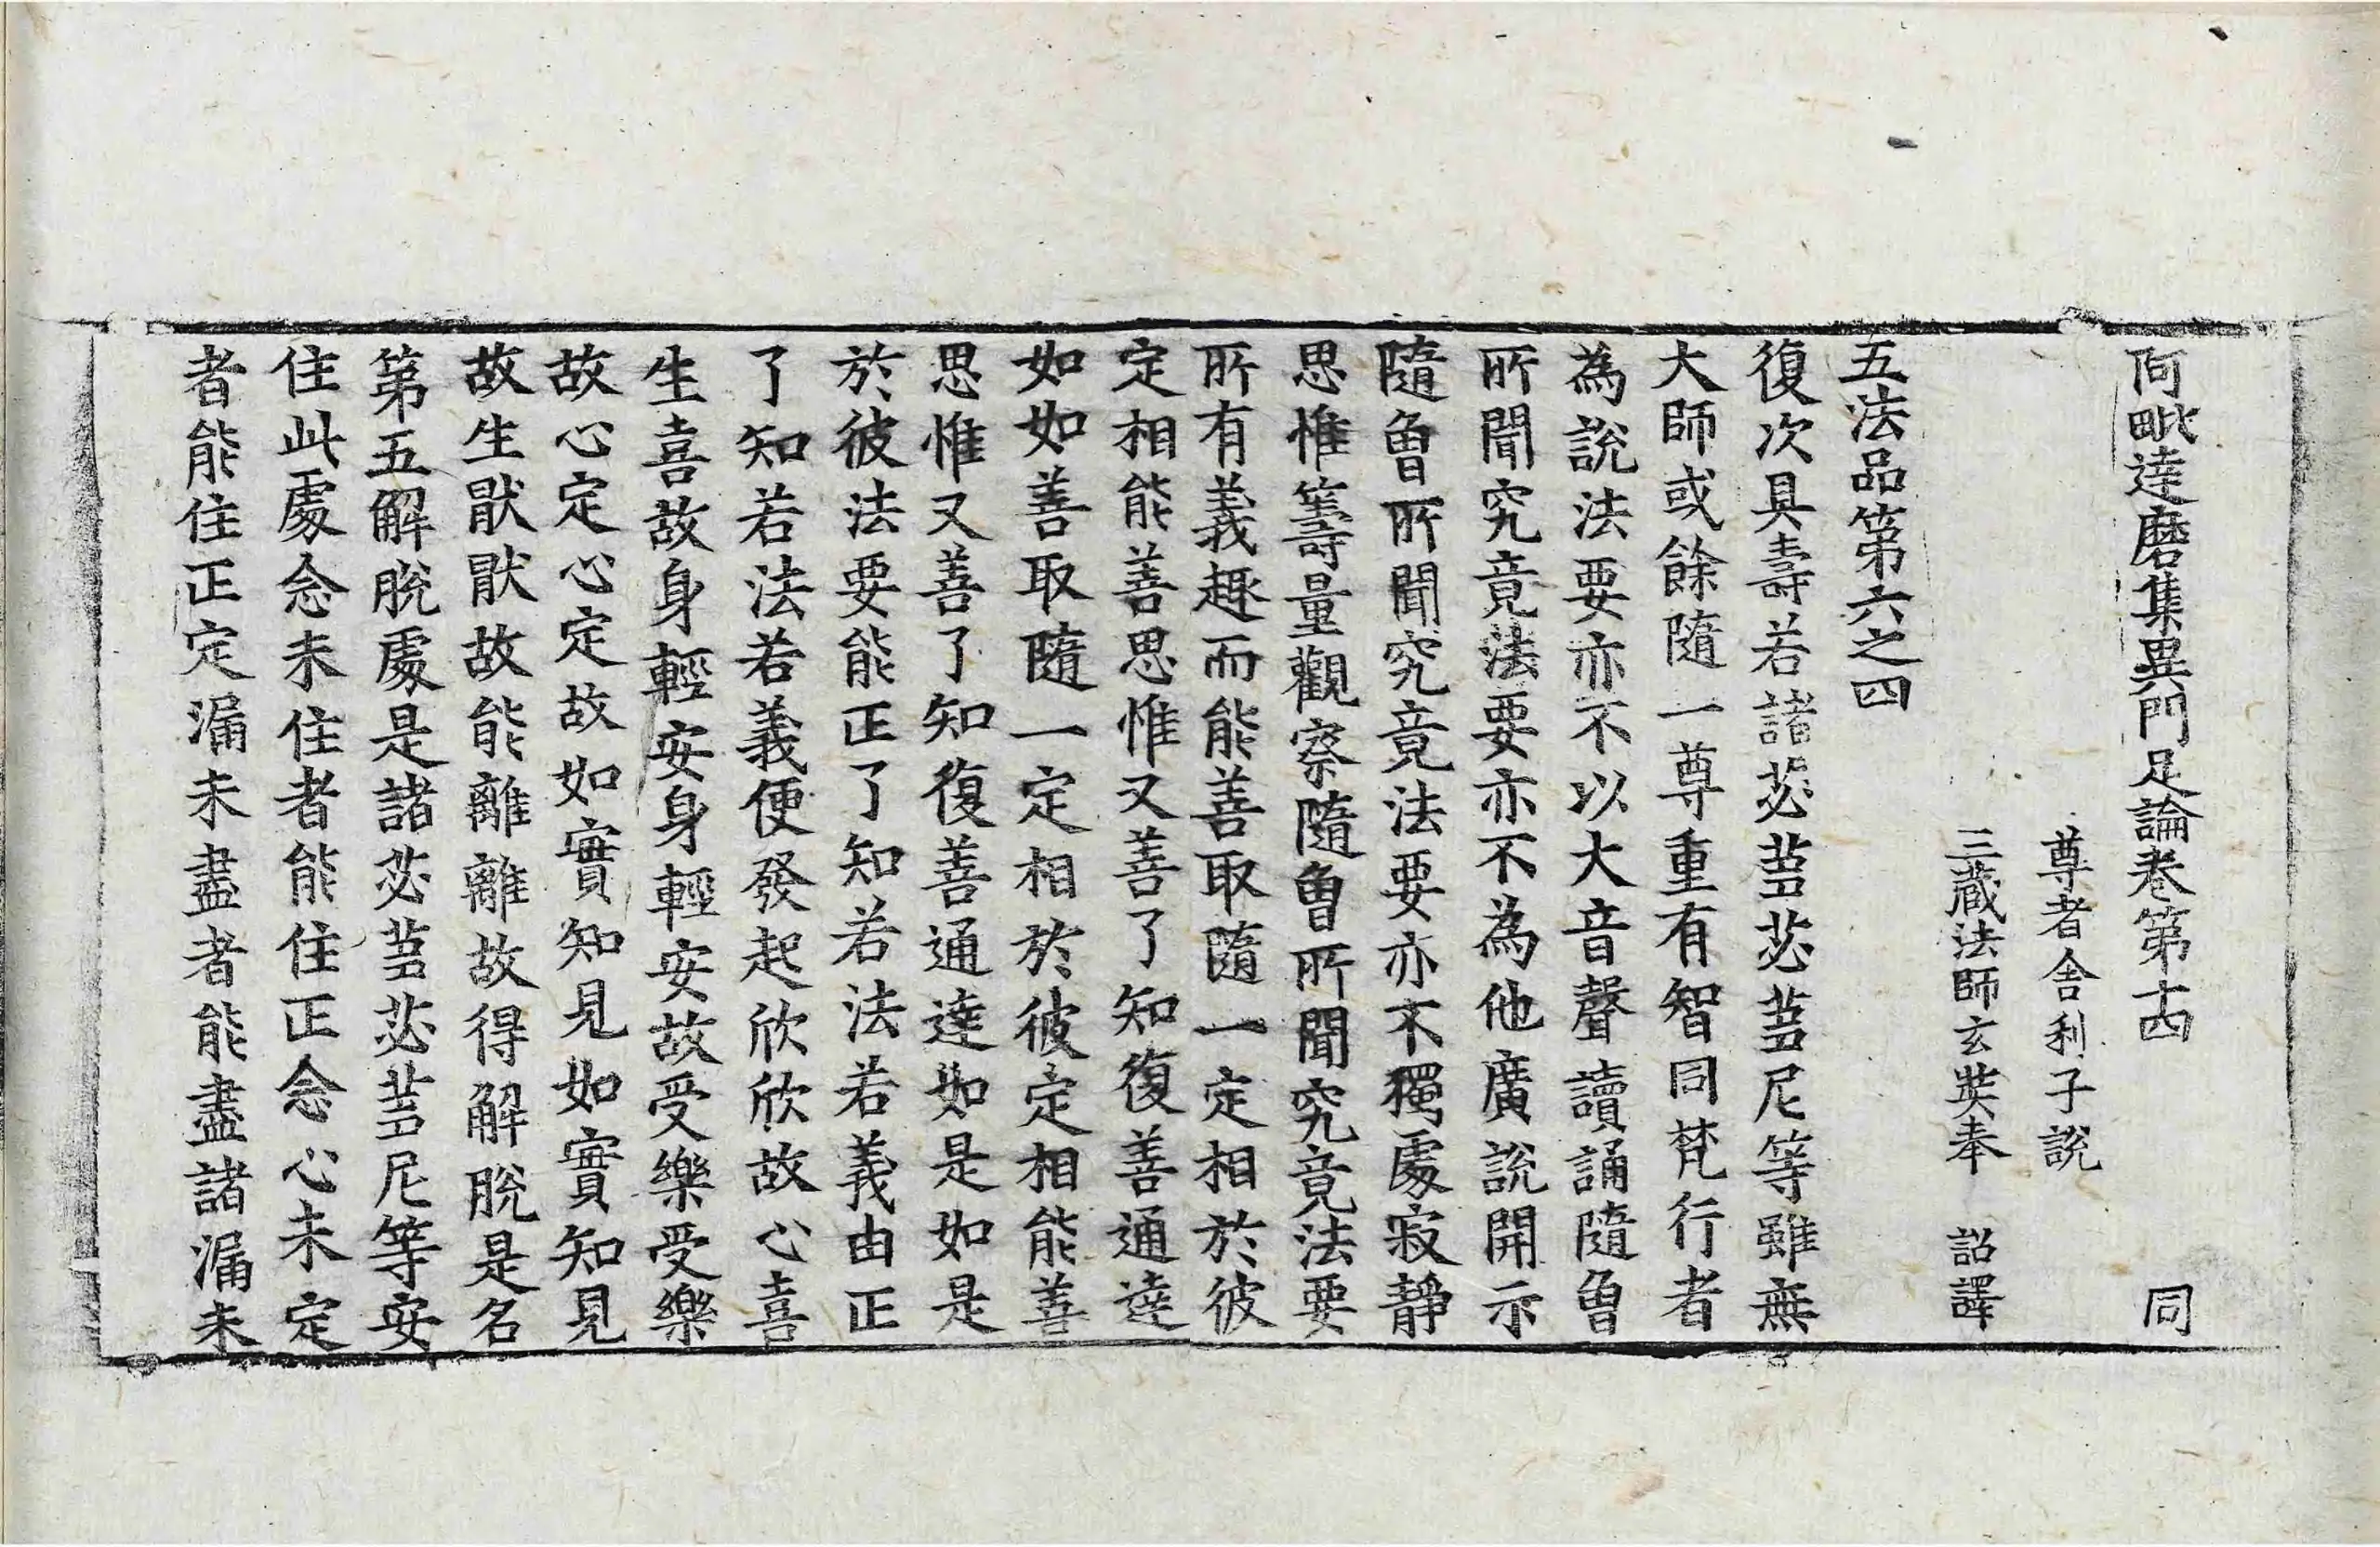 阿毗達磨集異門足論卷第十四　同
尊者舍利子說
三藏法師玄奘奉　詔譯
五法品第六之四
復次具壽若諸苾蒭苾蒭尼等雖無
大師或餘隨一尊重有智同梵行者
為說法要亦不以大音聲讀誦隨曾
所聞究竟法要亦不為他廣說開示
隨曾所聞究竟法要亦不獨處寂靜
思惟籌量觀察隨曾所聞究竟法要
所有義趣而能善取隨一定相於彼
定相能善思惟又善了知復善通達
如如善取隨一定相於彼定相能善
思惟又善了知復善通達如是如是
於彼法要能正了知若法若義由正
了知若法若義便發起欣欣故心喜
生喜故身輕安身輕安故受樂受樂
故心定心定故如實知見如實知見
故生猒猒故能離離故得解脫是名
第五解脫處是諸苾蒭苾蒭尼等安
住此處念未住者能住正念心未定
者能住正定漏未盡者能盡諸漏未